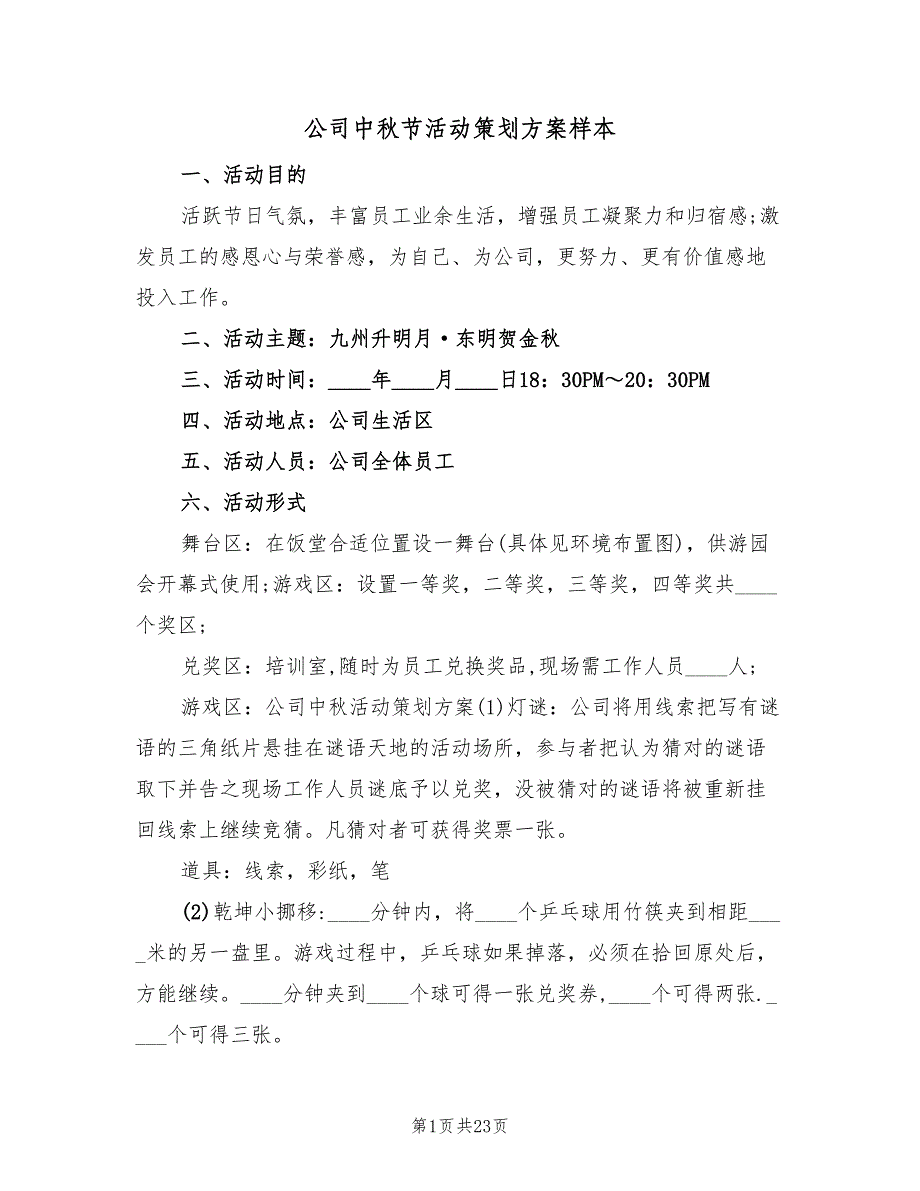 公司中秋节活动策划方案样本
一、活动目的
活跃节日气氛，丰富员工业余生活，增强员工凝聚力和归宿感;激
发员工的感恩心与荣誉感，为自己、为公司，更努力、更有价值感地
投入工作。
二、活动主题：九州升明月·东明贺金秋
三、活动时间：____年____月____日18：30PM～20：30PM
四、活动地点：公司生活区
五、活动人员：公司全体员工
六、活动形式
舞台区：在饭堂合适位置设一舞台(具体见环境布置图)，供游园
会开幕式使用;游戏区：设置一等奖，二等奖，三等奖，四等奖共____
个奖区;
兑奖区：培训室,随时为员工兑换奖品,现场需工作人员____人;
游戏区：公司中秋活动策划方案(1)灯谜：公司将用线索把写有谜
语的三角纸片悬挂在谜语天地的活动场所，参与者把认为猜对的谜语
取下并告之现场工作人员谜底予以兑奖，没被猜对的谜语将被重新挂
回线索上继续竞猜。凡猜对者可获得奖票一张。
道具：线索，彩纸，笔
(2)乾坤小挪移:____分钟内，将____个乒乓球用竹筷夹到相距___
_米的另一盘里。游戏过程中，乒乓球如果掉落，必须在拾回原处后，
方能继续。____分钟夹到____个球可得一张兑奖券,____个可得两张._
___个可得三张。
第1页共23页